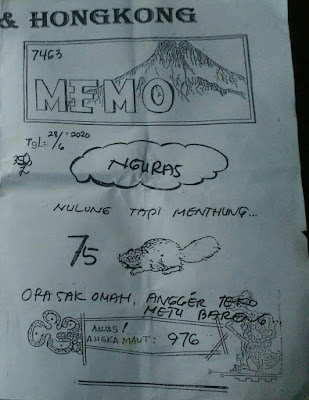 & HONGKONG
7463
MEMO
TGL: 28/6 2020
NGURAS
NULUNG TAPI MENTHUNG...
75
ORA SAK OMAH, ANGGER TEKO
METU BARENG...
AWAS!
ANGKA MAUT: 976